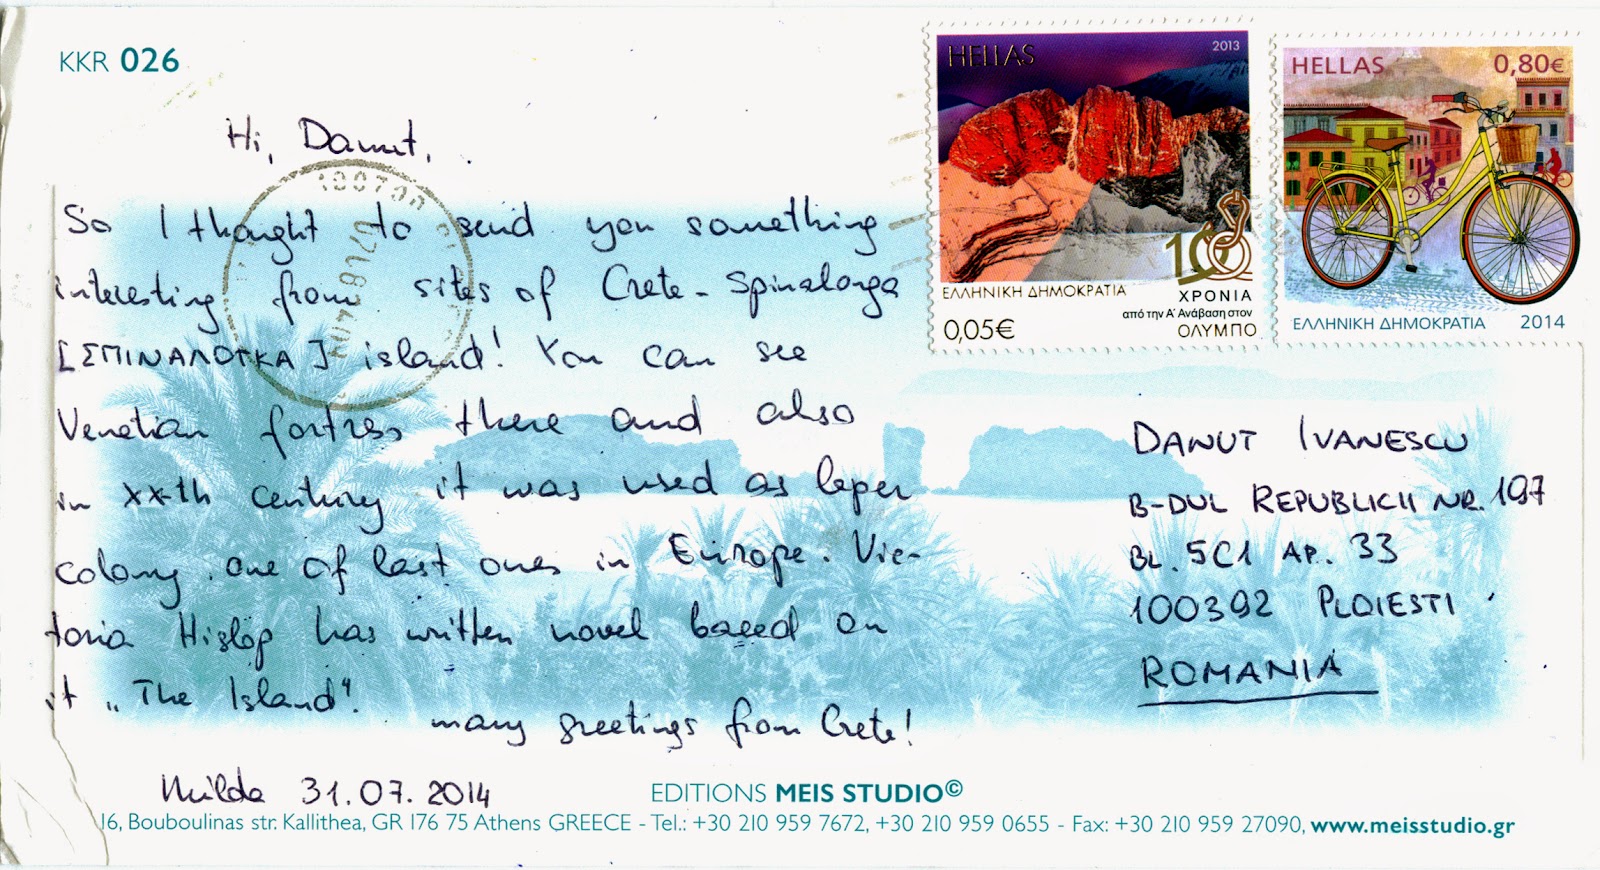 KKR 026
Hi, Danut,
So I thought to send you something
interesting from sites of Crete - Spinalonga
[ΣΠΙΝΑΛΟΓΚΑ] island! You can see
Venetian fortress there and also
in XX-th century it was used as leper
colony, one of last ones in Europe. Vic-
toria Hislop has written novel based on
it „The Island"!
many greetings from Crete!
Milda 31.07.2014
HELLAS 2013
10
ΕΛΛΗΝΙΚΗ ΔΗΜΟΚΡΑΤΙΑ
ΧΡΟΝΙΑ
από την Α' Ανάβαση στον
0,05€ ΟΛΥΜΠΟ
HELLAS 0,80€
ΕΛΛΗΝΙΚΗ ΔΗΜΟΚΡΑΤΙΑ 2014
DANUT IVANESCU
B-DUL REPUBLICII NR. 197
BL. 5C1 AP. 33
100392 PLOIESTI
ROMANIA
EDITIONS MEIS STUDIO©
16, Bouboulinas str. Kallithea, GR 176 75 Athens GREECE - Tel.: +30 210 959 7672, +30 210 959 0655 - Fax: +30 210 959 27090, www.meisstudio.gr